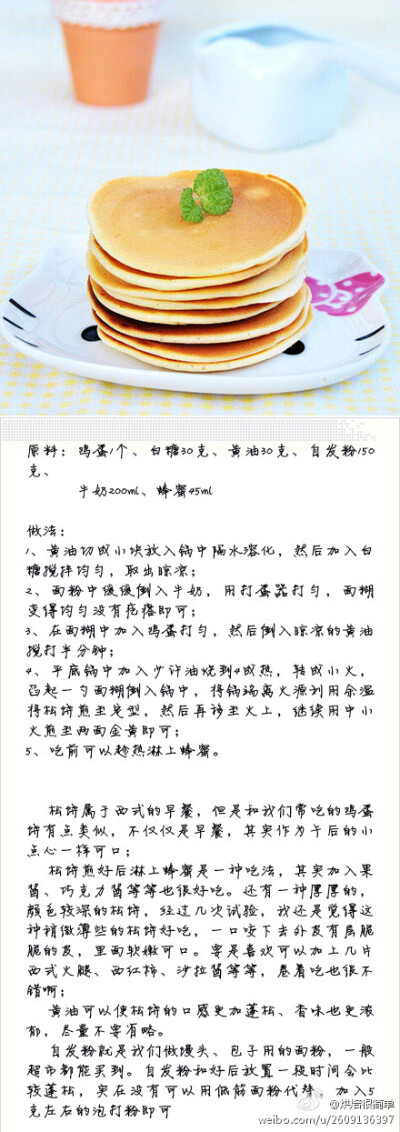 原料：鸡蛋1个、白糖30克、黄油30克、自发粉150
克、
牛奶200ml、蜂蜜45ml
做法：
1、黄油切成小块放入锅中隔水溶化，然后加入白
糖搅拌均匀，取出晾凉；
2、面粉中缓缓倒入牛奶，用打蛋器打匀，面糊
变得均匀没有疙瘩即可；
3、在面糊中加入鸡蛋打匀，然后倒入晾凉的黄油
搅打半分钟；
4、平底锅中加入少许油烧到4成热，转成小火，
舀起一勺面糊倒入锅中，将锅端离火源利用余温
将松饼煎至定型，然后再移至火上，继续用中小
火煎至两面金黄即可；
5、吃前可以趁热淋上蜂蜜。
松饼属于西式的早餐，但是和我们常吃的鸡蛋
饼有点类似，不仅仅是早餐，其实作为午后的小
点心一样可口；
松饼煎好后淋上蜂蜜是一种吃法，其实加入果
酱、巧克力酱等等也很好吃。还有一种厚厚的，
颜色较深的松饼，经过几次试验，我还是觉得这
种稍微薄些的松饼好吃，一口咬下去外皮有焦脆
脆的皮，里面软嫩可口。要是喜欢可以加上几片
西式火腿、西红柿、沙拉酱等等，卷着吃也很不
错啊；
黄油可以使松饼的口感更加蓬松、香味也更浓
郁，尽量不要省略。
自发粉就是我们做馒头、包子用的面粉，一般
超市都能买到。自发粉和好后放置一段时间会比
较蓬松，实在没有可以用低筋面粉代替，加入5
克左右的泡打粉即可
@烘焙很简单
weibo.com/u/2609136397